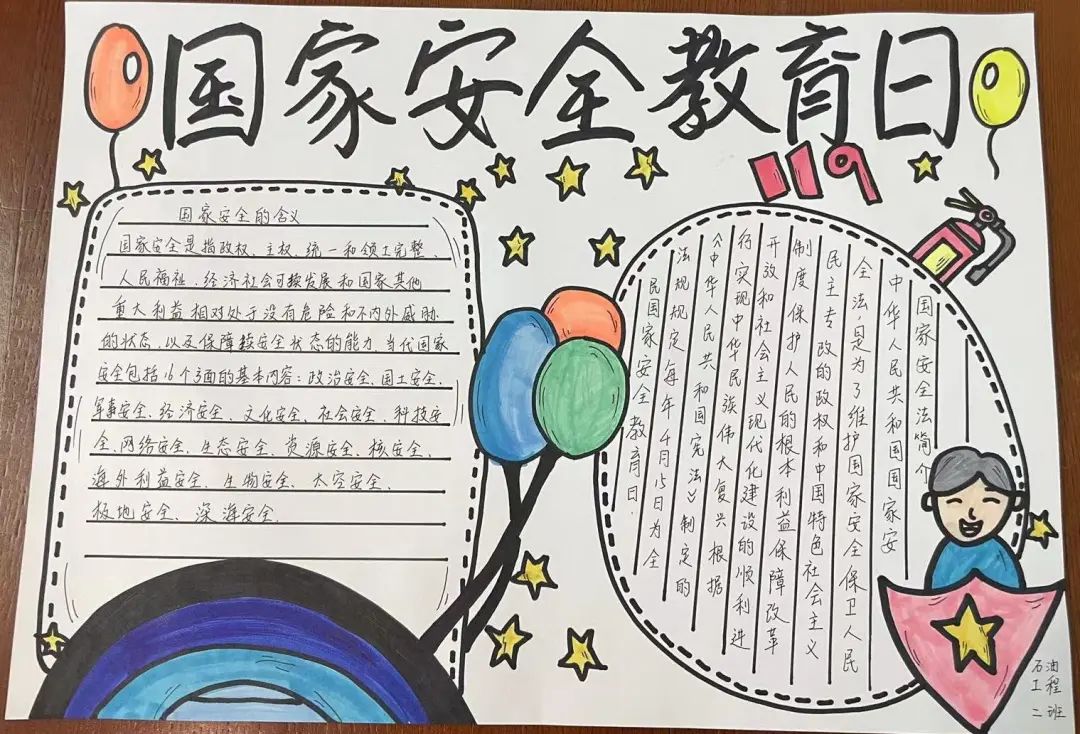 国家安全教育日
119
国家安全的含义
国家安全是指政权、主权、统一和领土完整、
人民福祉、经济社会可续发展和国家其他
重大利益相对处于没有危险和不内外威胁
的状态、以及保障续安全状态的能力.当代国家
安全包括16个方面的基本内容:政治安全.国土安全、
军事安全、经济安全、文化安全、社会安全、科技安
全.网络安全.生态安全、资源安全、核安全、
海外利益安全、生物安全、太空安全、
极地安全、深海安全.
国家安全法简介
中华人民共和国国家安
全法是为了维护国家安全保卫人民
民主专政的政权和中国特色社会主义
制度保护人民的根本利益保障改革
开放和社会主义现代化建设的顺利进
行实现中华民族伟大复兴根据
《中华人民共和国宪法》制定的
法规规定每年4月15日为全
民国家安全教育日.
石油
工程
二班